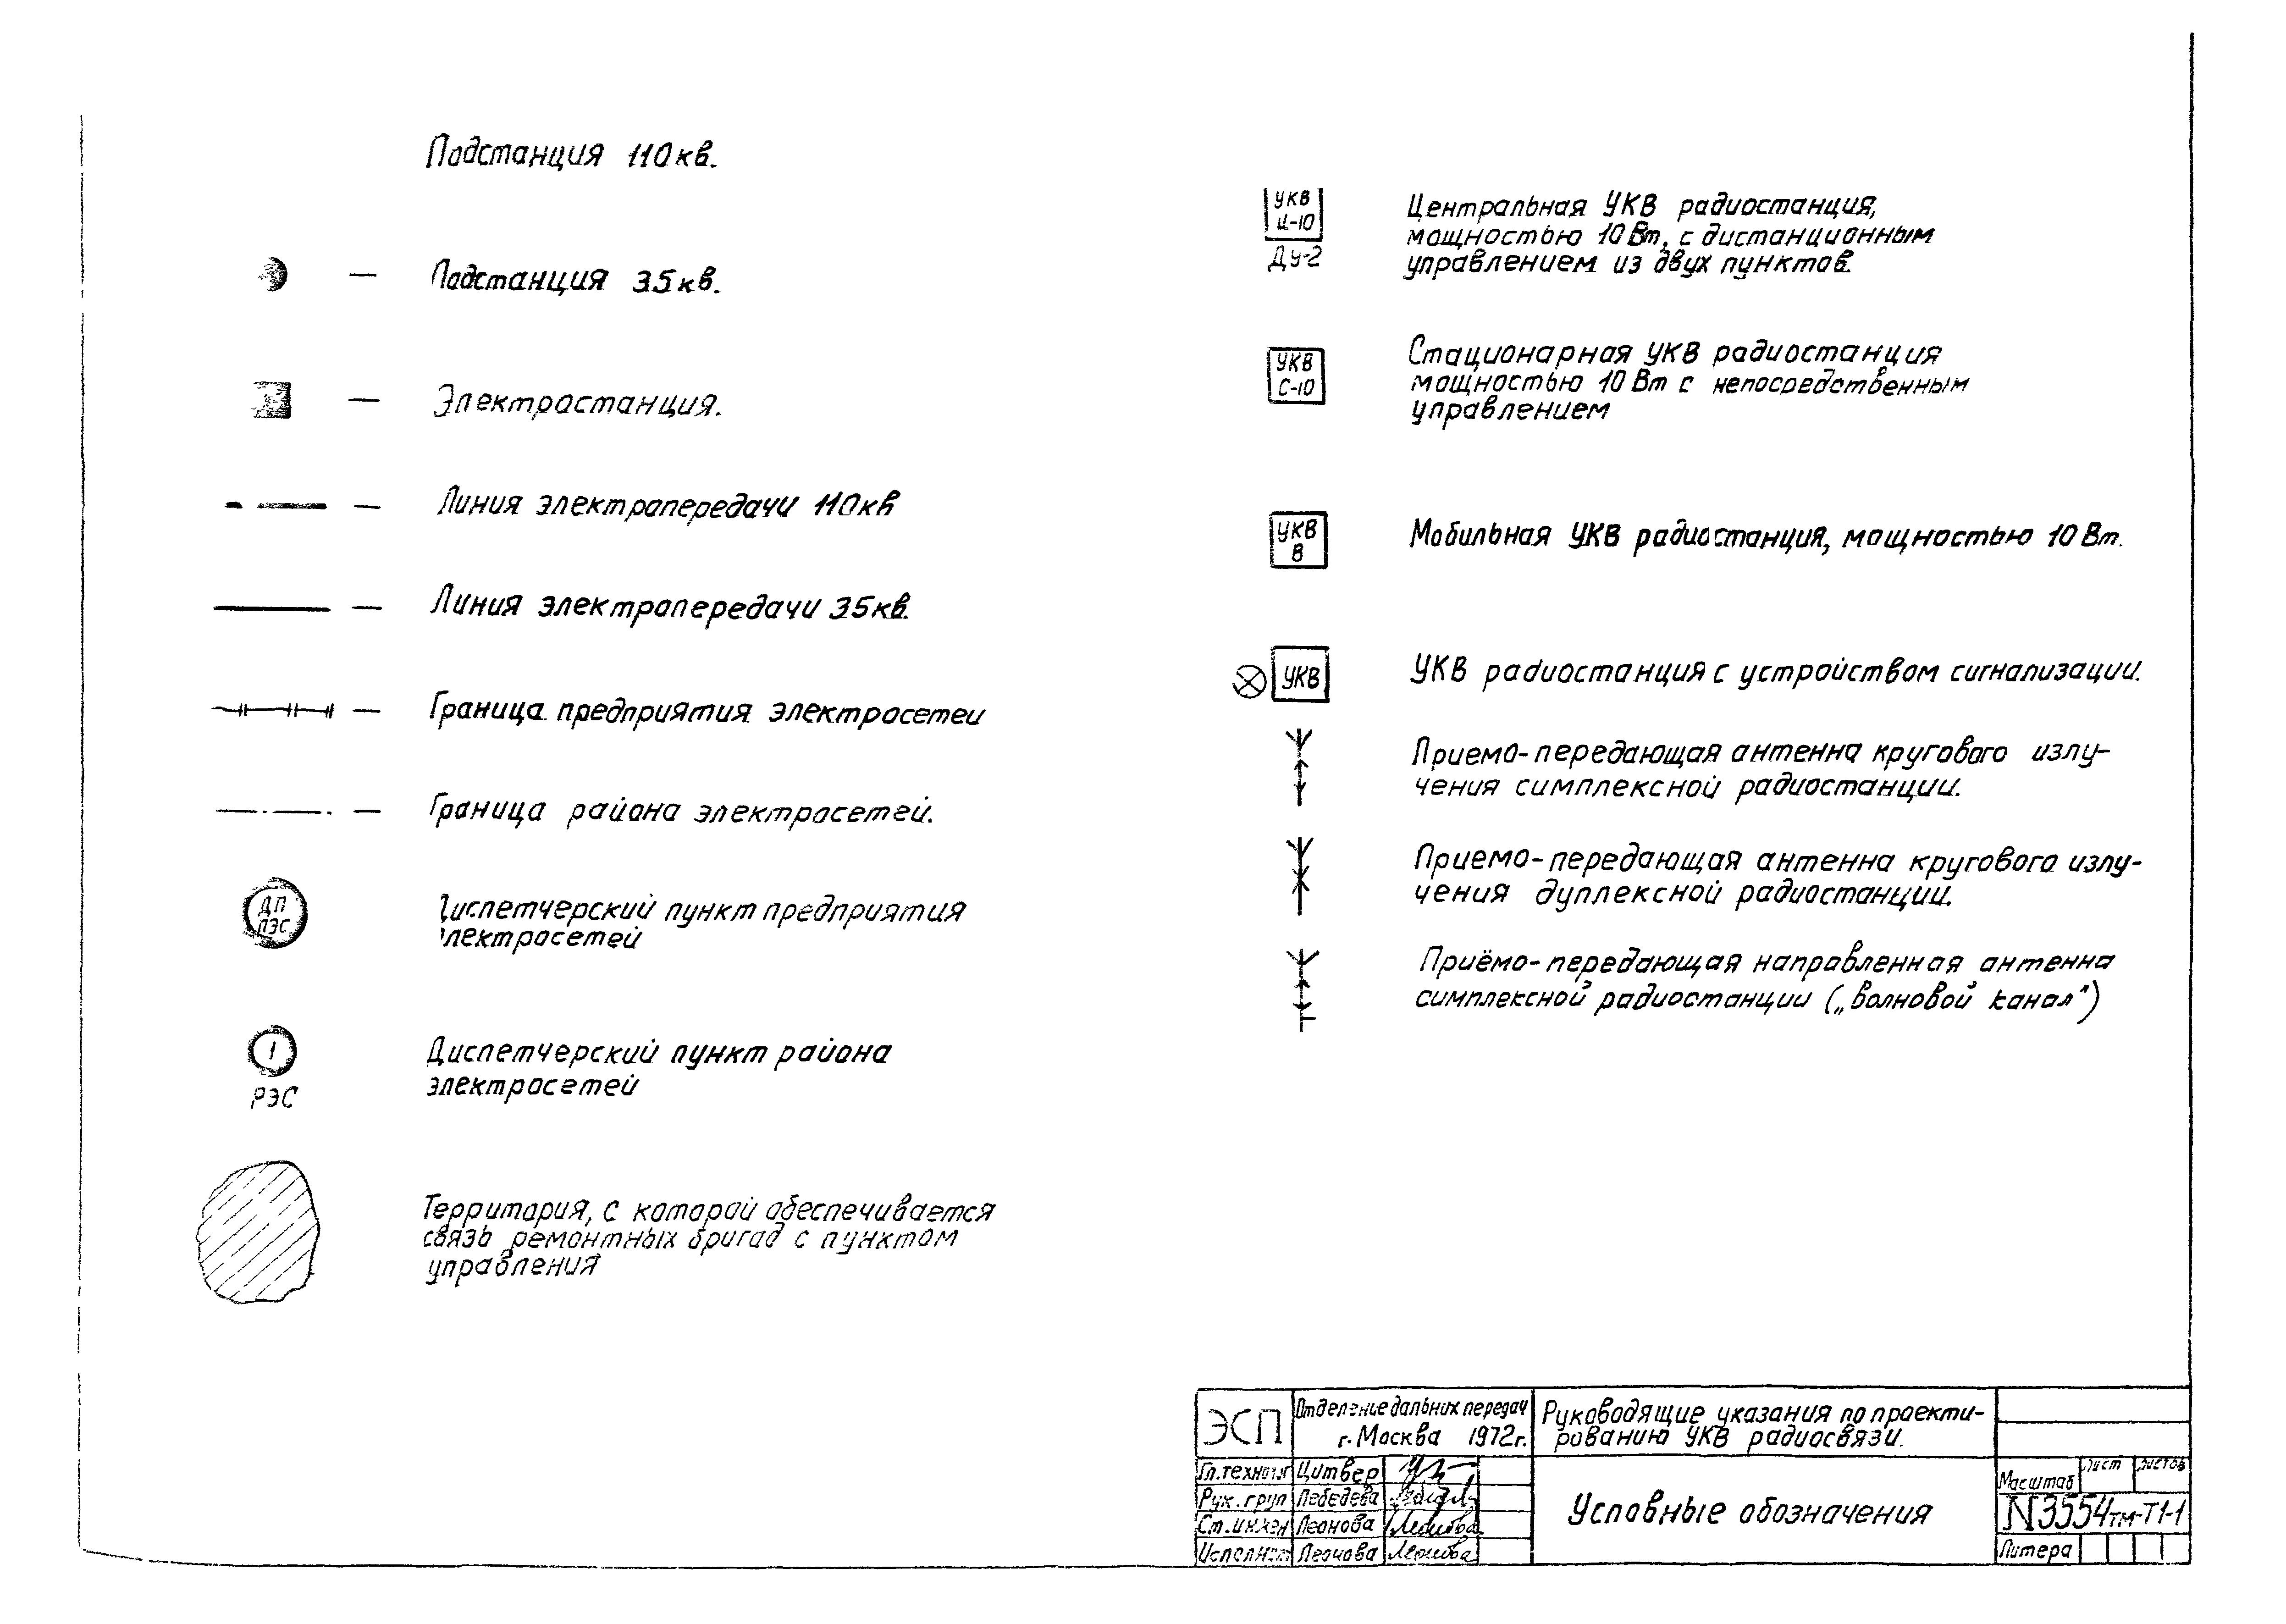 Подстанция 110кв.
Подстанция 35кв.
Электростанция.
Линия электропередачи 110кв
Линия электропередачи 35кв.
Граница предприятия электросетей
Граница района электросетей.
ДП
ПЭС
Диспетчерский пункт предприятия
электросетей
1
РЭС
Диспетчерский пункт района
электросетей
Территория, с которой обеспечивается
связь ремонтных бригад с пунктом
управления
УКВ
Ц-10
ДУ-2
Центральная УКВ радиостанция,
мощностью 10 Вт, с дистанционным
управлением из двух пунктов.
УКВ
С-10
Стационарная УКВ радиостанция
мощностью 10 Вт с непосредственным
управлением
УКВ
В
Мобильная УКВ радиостанция, мощностью 10 Вт.
УКВ
УКВ радиостанция с устройством сигнализации.
Приемо-передающая антенна кругового излу-
чения симплексной радиостанции.
Приемо-передающая антенна кругового излу-
чения дуплексной радиостанции.
Приёмо-передающая направленная антенна
симплексной радиостанции („волновой канал")
ЭСП
Отделение дальних передач
г. Москва 1972г.
Руководящие указания по проекти-
рованию УКВ радиосвязи.
Гл. техн Цитвер
Рук. груп Лебедева
Ст. инжен Леонова Леонова
Исполн Леонова Леонова
Условные обозначения
Масштаб Лист Листов
N3554тм-Т1-1
Литера